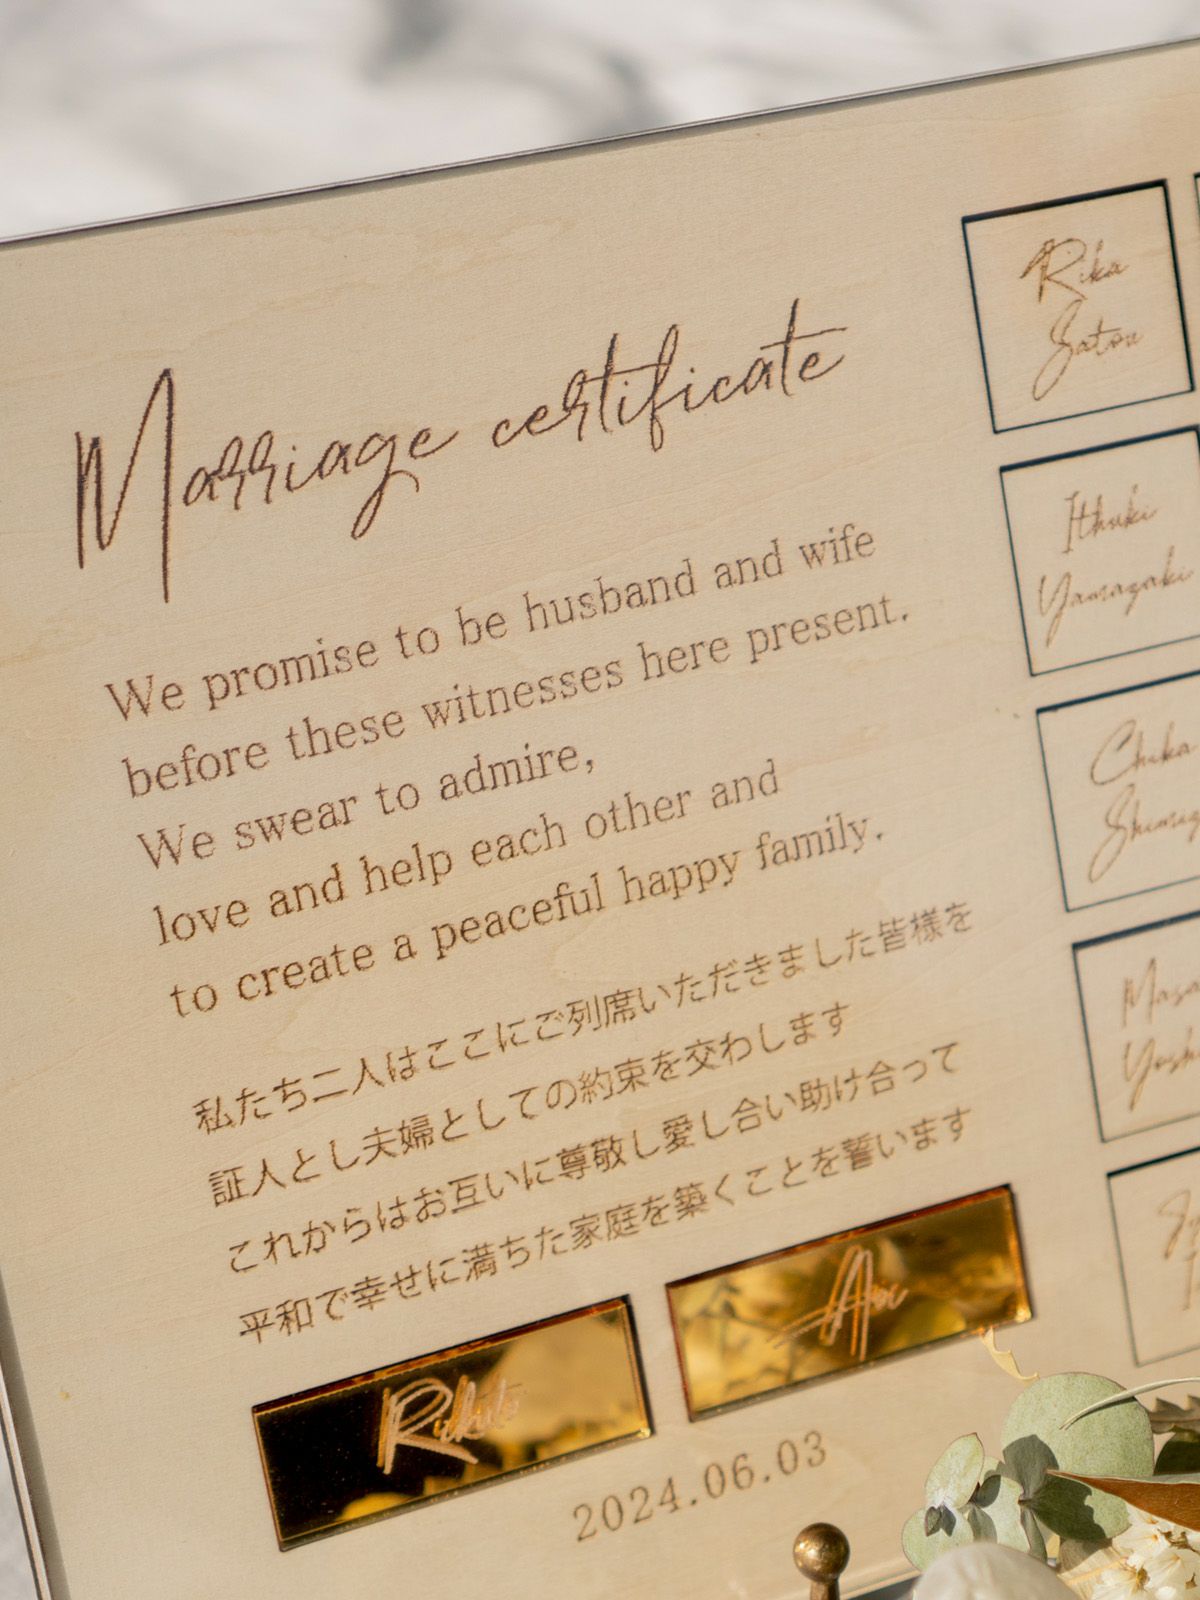 Marriage certificate
We promise to be husband and wife
before these witnesses here present.
We swear to admire,
love and help each other and
to create a peaceful happy family.
私たち二人はここにご列席いただきました皆様を
証人とし夫婦としての約束を交わします
これからはお互いに尊敬し愛し合い助け合って
平和で幸せに満ちた家庭を築くことを誓います
Rikuto
Aoi
2024.06.03
Rika
Satou
Ithuki
Yamazaki
Chika